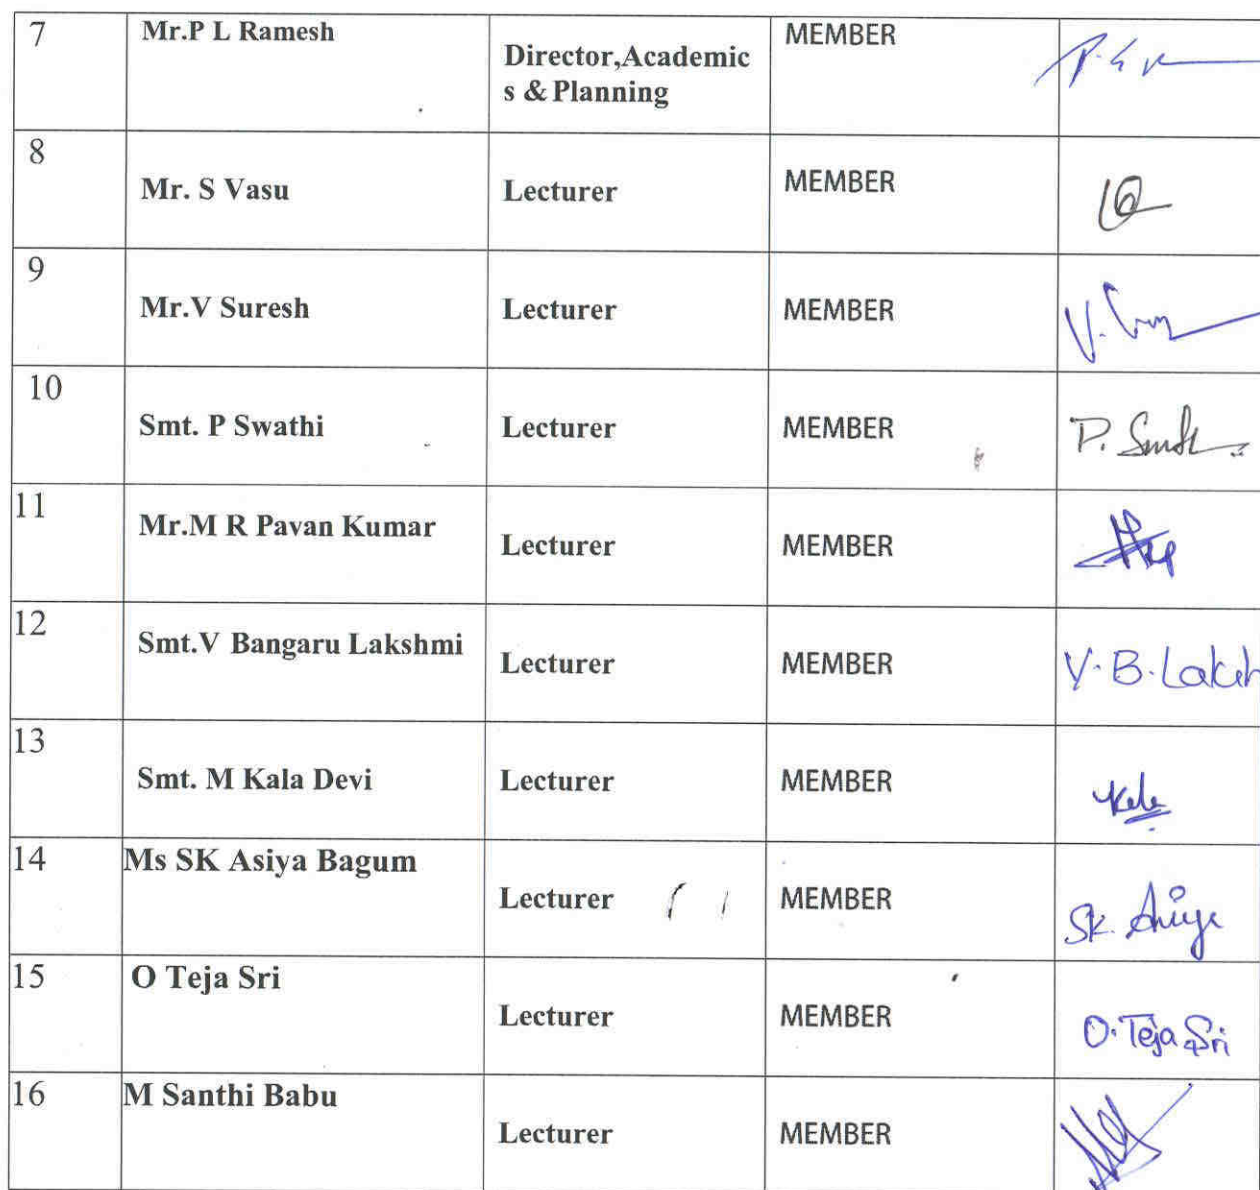 7 Mr.P L Ramesh Director,Academic MEMBER
s & Planning
8 Mr. S Vasu Lecturer MEMBER
9 Mr.V Suresh Lecturer MEMBER V.
10 Smt. P Swathi Lecturer MEMBER P.
11 Mr.M R Pavan Kumar Lecturer MEMBER
12 Smt.V Bangaru Lakshmi Lecturer MEMBER V.B.Laksh
13 Smt. M Kala Devi Lecturer MEMBER Kala
14 Ms SK Asiya Bagum Lecturer MEMBER SK. Asiya
15 O Teja Sri Lecturer MEMBER O.Teja Sri
16 M Santhi Babu Lecturer MEMBER